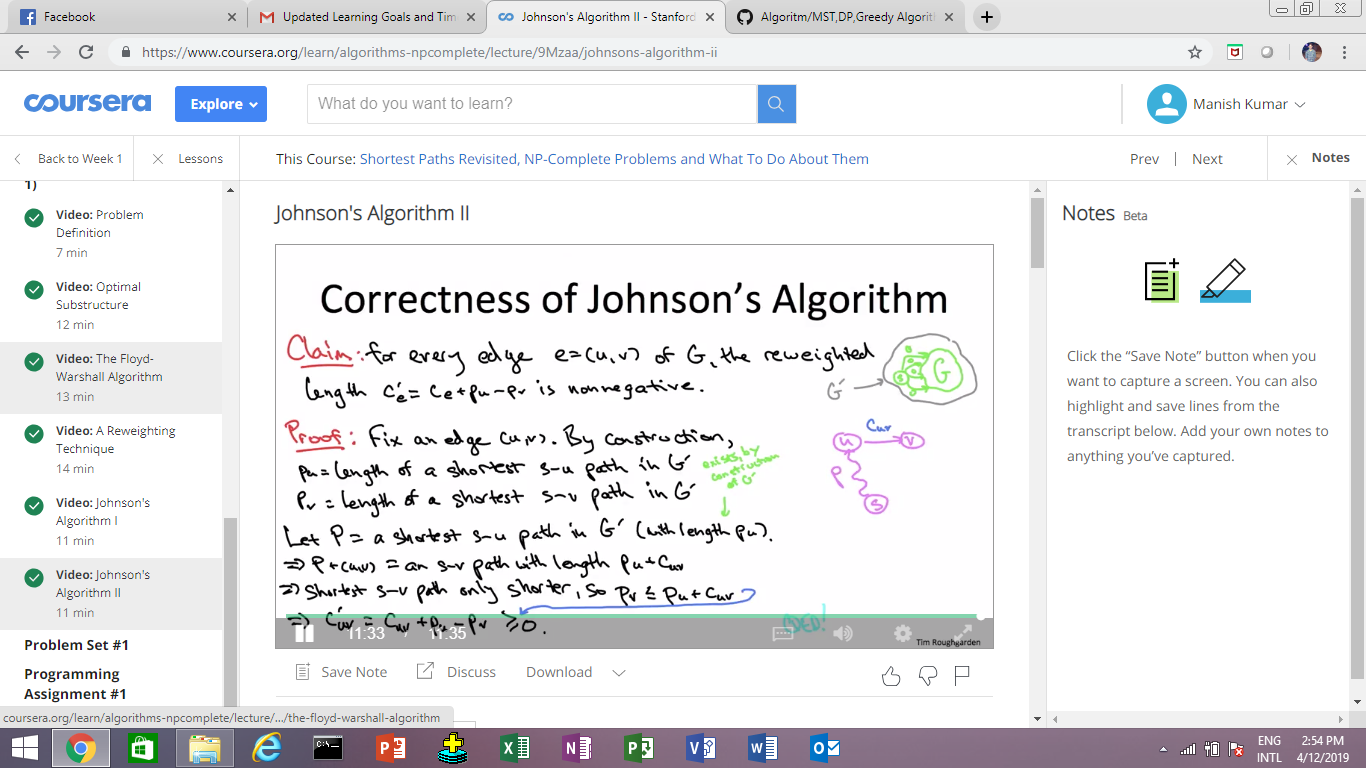 Facebook
Updated Learning Goals and Tim
Johnson's Algorithm II - Stanford
Algoritm/MST,DP,Greedy Algorit
https://www.coursera.org/learn/algorithms-npcomplete/lecture/9Mzaa/johnsons-algorithm-ii
coursera
Explore
What do you want to learn?
Manish Kumar
Back to Week 1
Lessons
This Course: Shortest Paths Revisited, NP-Complete Problems and What To Do About Them
Prev | Next
Notes
1)
Video: Problem
Definition
7 min
Video: Optimal
Substructure
12 min
Video: The Floyd-
Warshall Algorithm
13 min
Video: A Reweighting
Technique
14 min
Video: Johnson's
Algorithm I
11 min
Video: Johnson's
Algorithm II
11 min
Problem Set #1
Programming
Assignment #1
coursera.org/learn/algorithms-npcomplete/lecture/.../the-floyd-warshall-algorithm
Johnson's Algorithm II
Correctness of Johnson's Algorithm
Claim: for every edge e=(u,v) of G, the reweighted
length c'e = ce+pu-pv is nonnegative.
G'
G
s
Proof: Fix an edge (u,v). By construction,
pu = length of a shortest s-u path in G'
pv = length of a shortest s-v path in G'
exists, by
construction
of G'
u
cuv
v
P
s
Let P = a shortest s-u path in G' (with length pu).
⇒ P+(u,v) = an s-v path with length pu+cuv
⇒ shortest s-v path only shorter, so pv ≤ pu+cuv
⇒ c'uv = cuv+pu-pv ≥0.
QED!
11:33 / 11:35
Tim Roughgarden
Save Note
Discuss
Download
Notes Beta
Click the “Save Note” button when you
want to capture a screen. You can also
highlight and save lines from the
transcript below. Add your own notes to
anything you’ve captured.
ENG
INTL
2:54 PM
4/12/2019